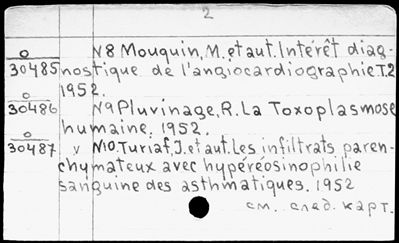 2
о N8 Mouquin, M. et aut. Intérêt diag-
30485 nostique de l'angiocardiographie T.2
1952.
о N9 Pluvinage, R. La Toxoplasmose
30486 humaine. 1952.
о
30487 v N10. Turiaf, J. et aut. Les infiltrats paren-
chymateux avec hypéréosinophilie
sanguine des asthmatiques. 1952
см. след. карт.